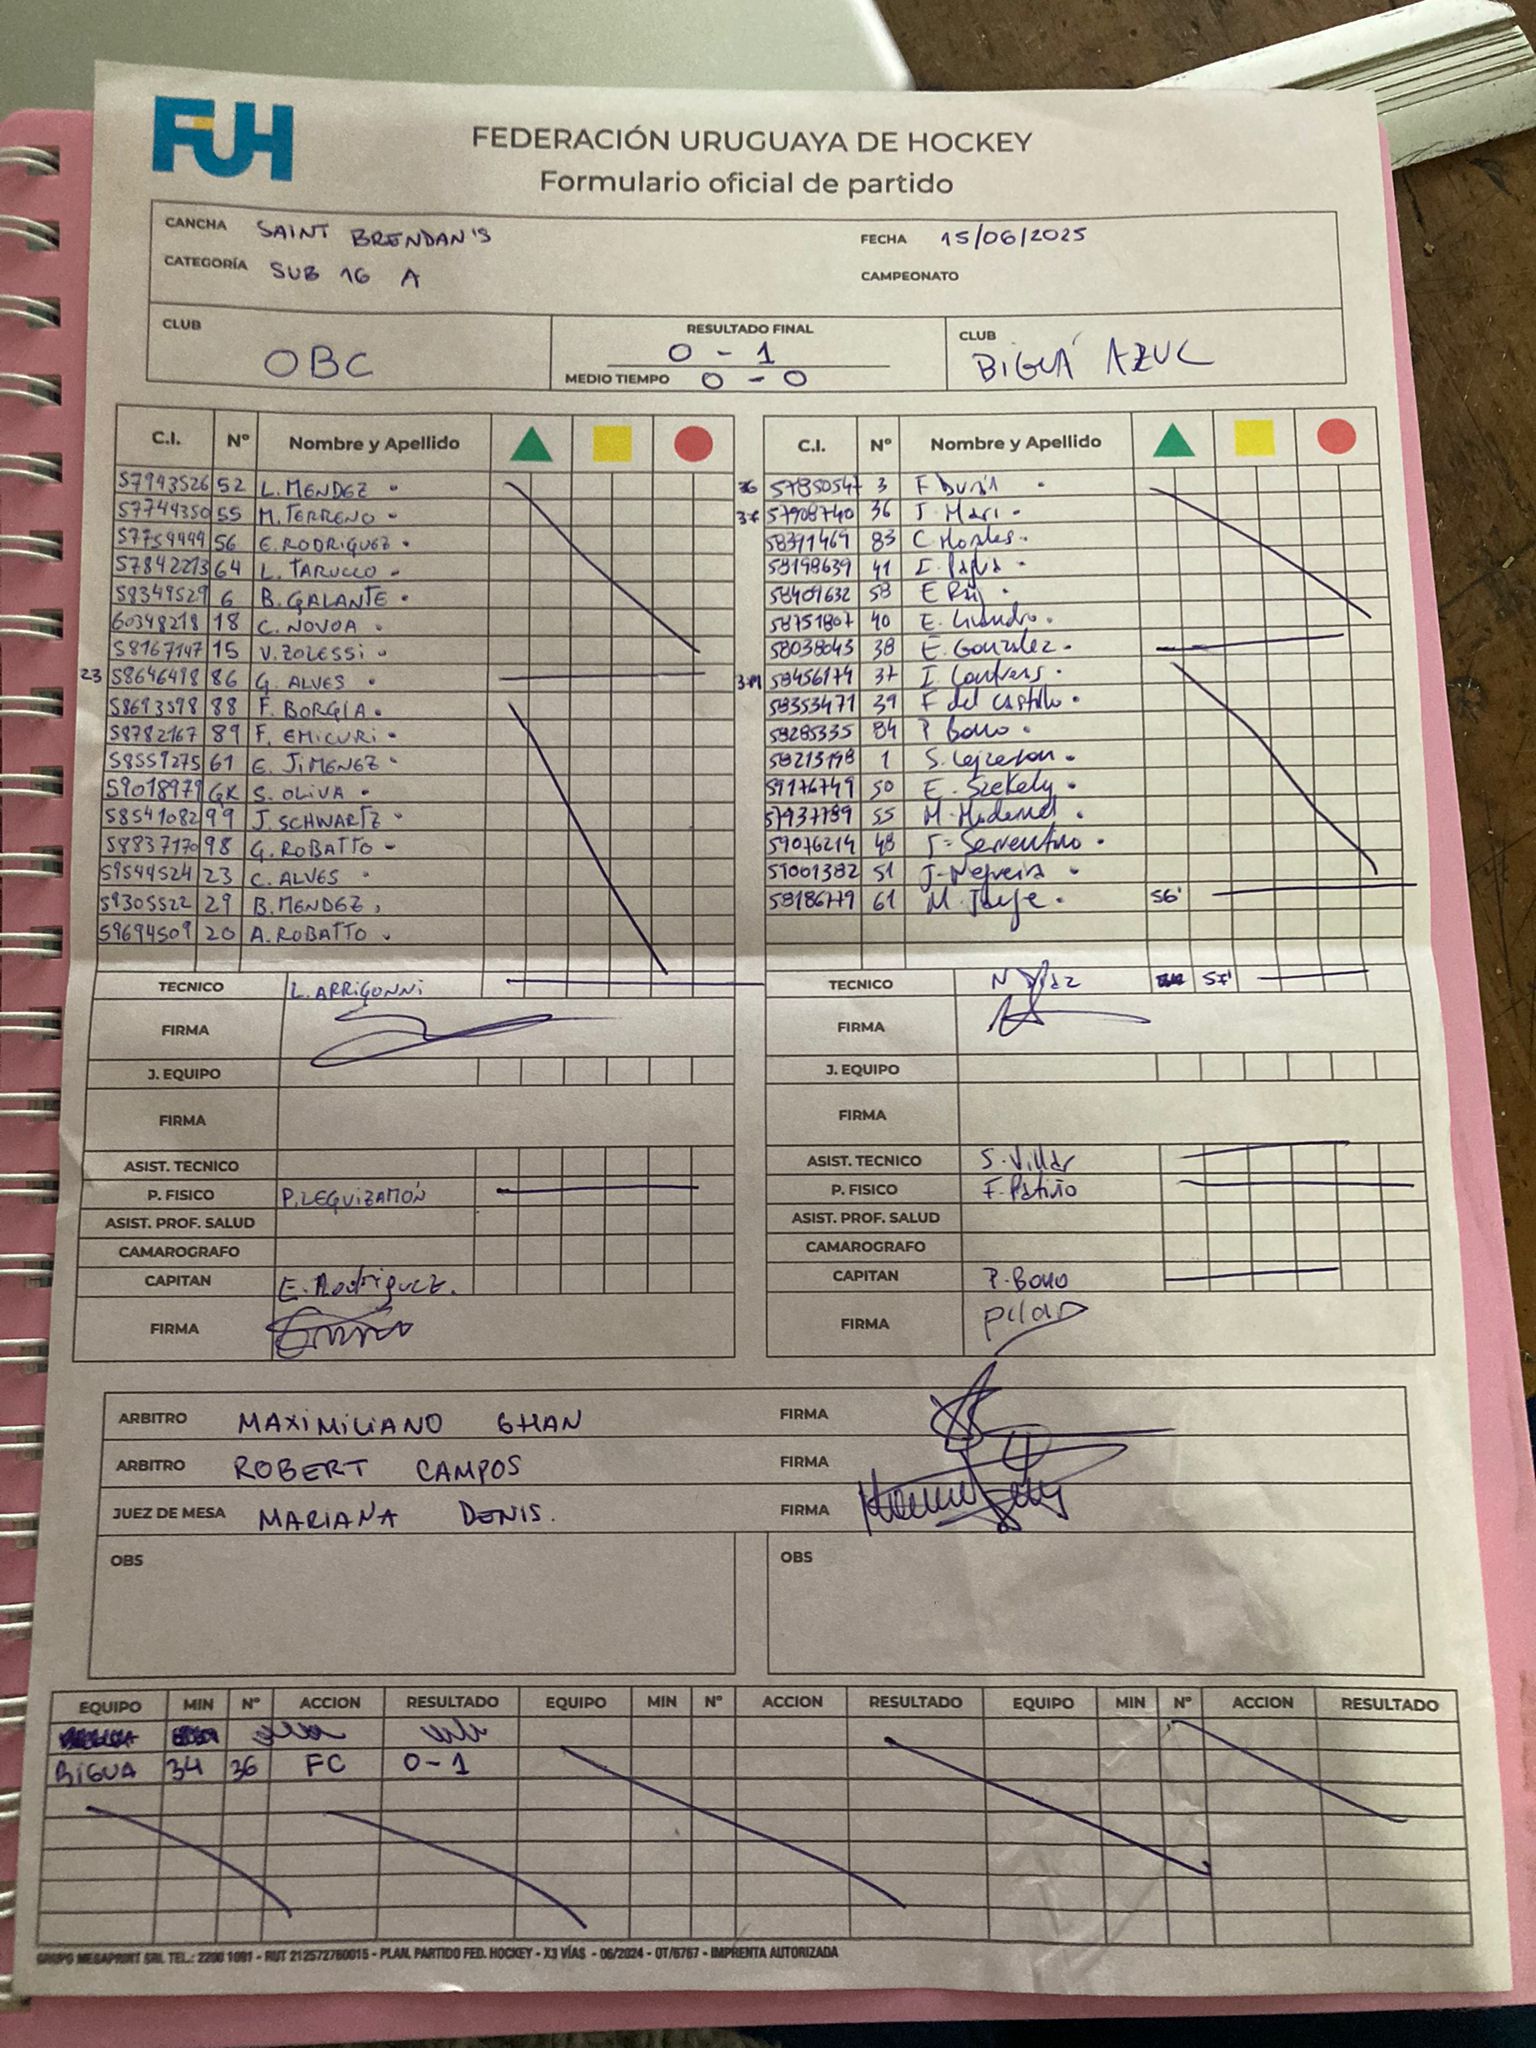 FUH
FEDERACIÓN URUGUAYA DE HOCKEY
Formulario oficial de partido
CANCHA SAINT BRENDAN'S FECHA 15/06/2025
CATEGORÍA SUB 16 A CAMPEONATO
CLUB OBC RESULTADO FINAL 0 - 1 CLUB BIGUÁ AZUL
MEDIO TIEMPO 0 - 0
C.I. Nº Nombre y Apellido C.I. Nº Nombre y Apellido
57943526 52 L. MENDEZ 36 57835054 3 F
57744350 55 M. TERRENO 57908740 36 J. Mari
57754444 56 E. RODRIGUEZ 58391469 83 C.
57842213 64 L. TARULLO 58198639 41
58349529 6 B. GALANTE 58409632 58 E
60348218 18 C. NOVOA 58751807 40 E.
58167147 15 V. ZOLESSI 58038043 38 E. González
23 58646498 86 G. ALVES 58456174 37 I.
58693598 88 F. BORGIA 58353471 39 F del Castillo
58782167 89 F. EMICURI 58285335 84 P Bono
58559275 61 E. JIMENEZ 58213198 1 S.
59018979 GK S. OLIVA 59176749 50 E. Szekely
58541082 99 J. SCHWARTZ 57937789 55 M.
58837170 98 G. ROBATTO 59076214 48 Serrentino
59544524 23 C. ALVES 59001382 51 J. Negreira
59305522 29 B. MENDEZ 58186779 61 M. 56'
59694509 20 A. ROBATTO
TECNICO L. ARRIGONNI TECNICO N Diaz 57'
FIRMA FIRMA
J. EQUIPO J. EQUIPO
FIRMA FIRMA
ASIST. TECNICO ASIST. TECNICO S. Villar
P. FISICO P. LEGUIZAMÓN P. FISICO F. Patiño
ASIST. PROF. SALUD ASIST. PROF. SALUD
CAMAROGRAFO CAMAROGRAFO
CAPITAN E. Rodriguez. CAPITAN P. Bono
FIRMA FIRMA Pilar
ARBITRO MAXIMILIANO GHAN FIRMA
ARBITRO ROBERT CAMPOS FIRMA
JUEZ DE MESA MARIANA DENIS. FIRMA
OBS OBS
EQUIPO MIN Nº ACCION RESULTADO EQUIPO MIN Nº ACCION RESULTADO EQUIPO MIN Nº ACCION RESULTADO
BIGUA 34 36 FC 0-1
GRUPO MEGAPRINT SRL TEL.: 2200 1091 - RUT 212572760015 - PLAN. PARTIDO FED. HOCKEY - X3 VÍAS - 06/2024 - OT/6767 - IMPRENTA AUTORIZADA